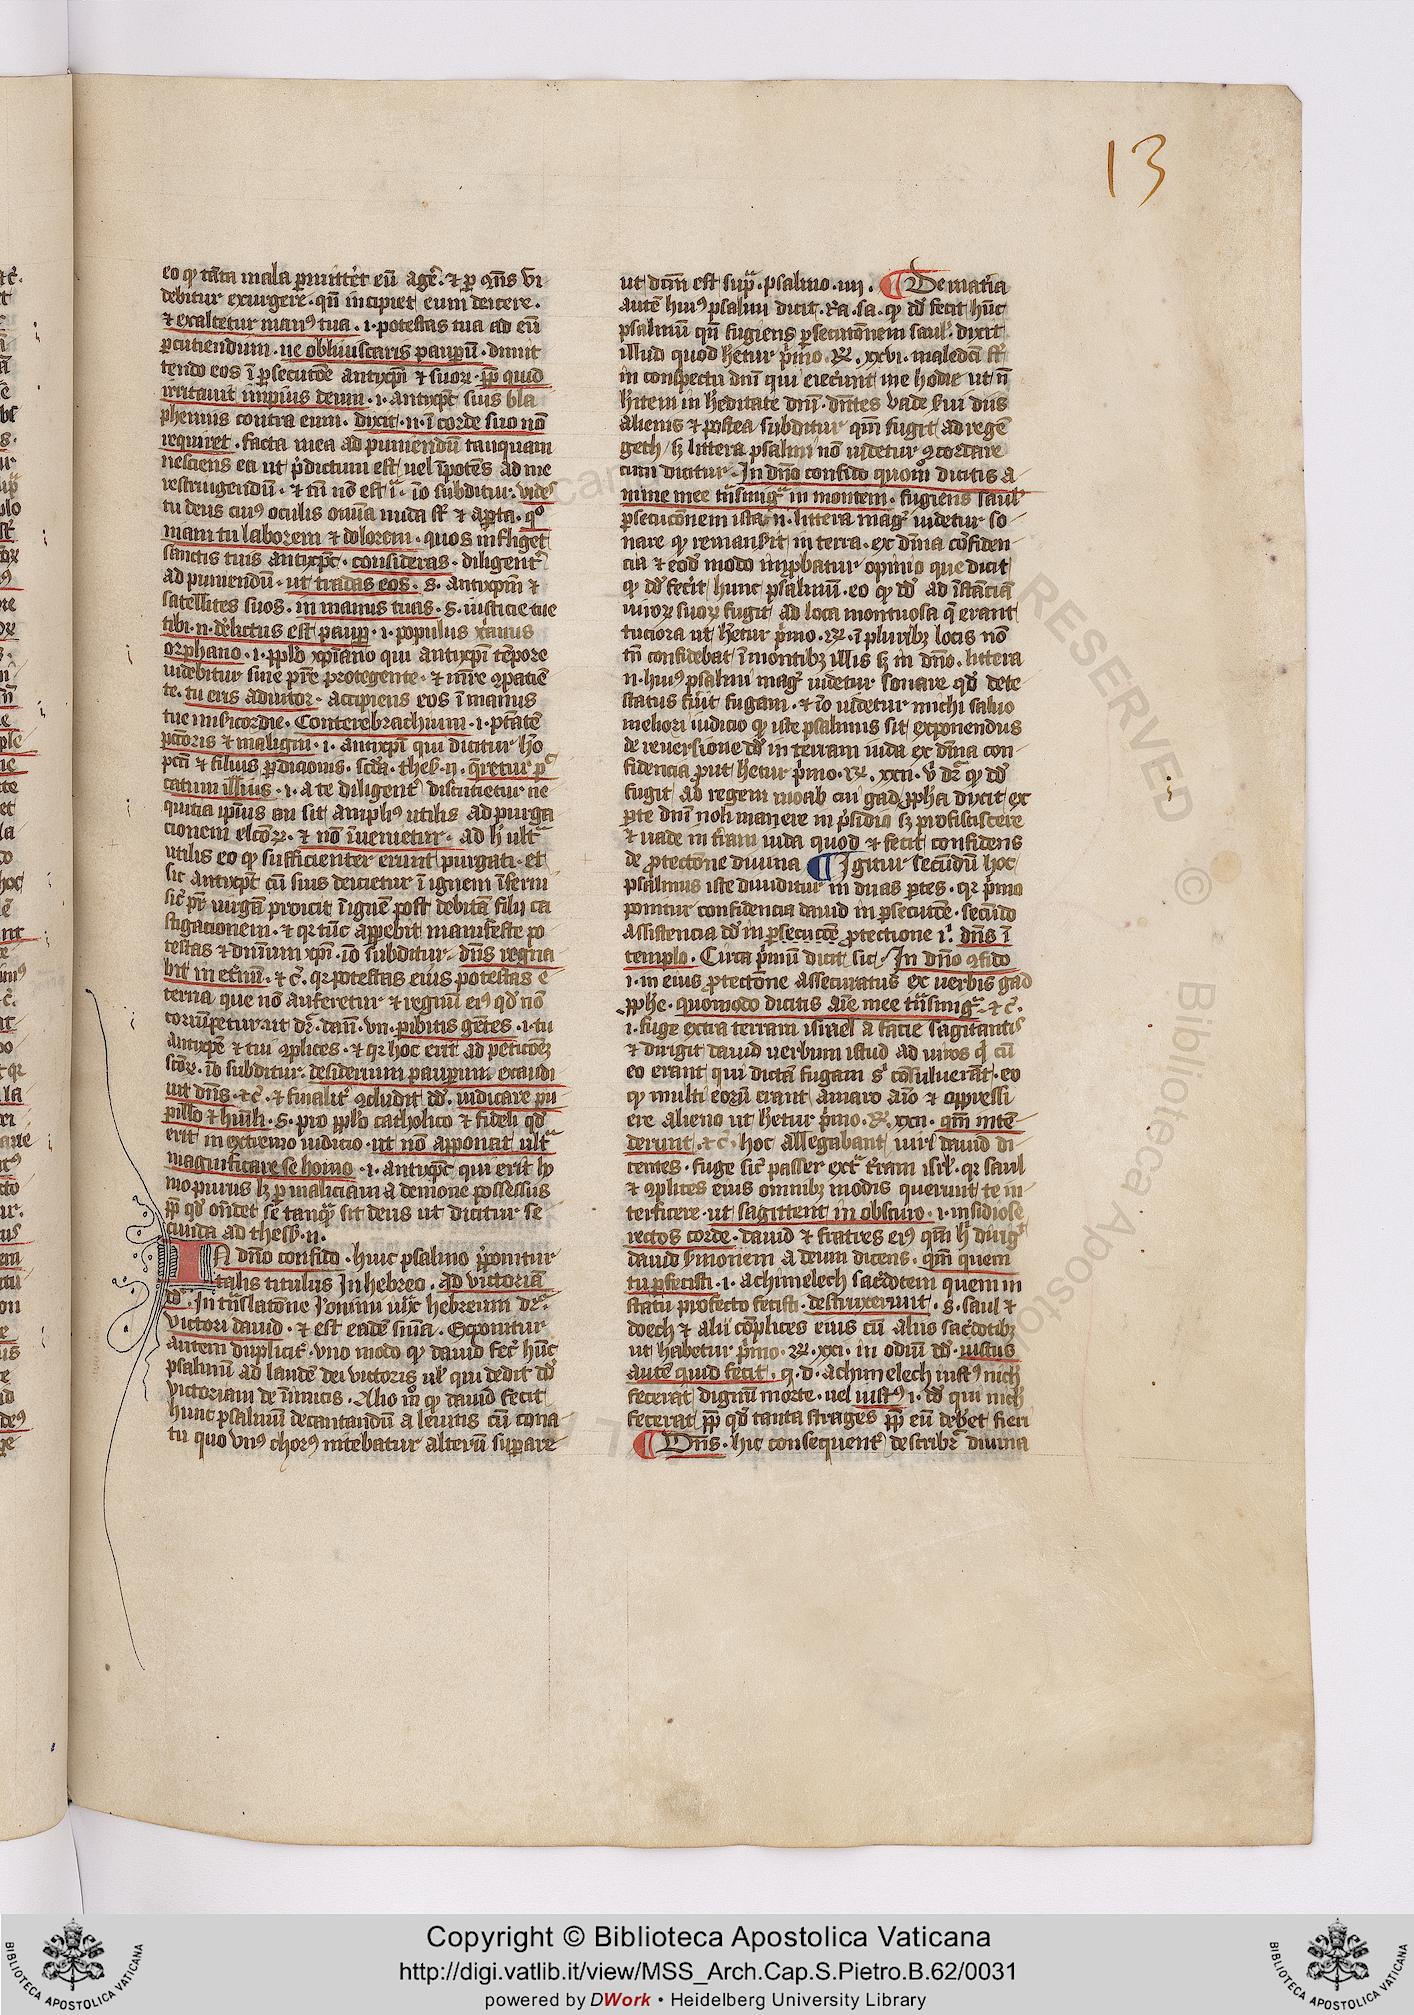 13
eo ꝙ tāta mala ꝑmittet̄ eū agē · ⁊ ꝑ ꝯn̄s vi
debitur exurgere · qn̄ incipiet eum deicere ·
⁊ exaltetur manꝰ tua · i · potestas tua ad eū
ꝑcutiendum · ne obliuiscaris pauꝑū · dimit
tendo eos ī ꝑsecutōe antixp̄i ⁊ suoꝝ · ꝓp̄ quid
irritauit impius deum · i · antixp̄c suis bla
phemiis contra eum · dixit · n · ī corde suo nō
requiret · facta mea ad puniendū tanquam
nesciens ea ut p̄dictum est uel īpotēs ad me
restringendū · ⁊ tn̄ nō est ī · iō subditur · vides
tu deus cuiꝰ oculis om̄ia nuda st̄ ⁊ aꝑta · qo
niam tu laborem ⁊ dolorem · quos infliget
sanctis tuis antixp̄c · consideras · diligent̄
ad puniendū · ut tradas eos · s · antixpm̄ ⁊
satellites suos · in manus tuas · s · iusticie tue
tibi · n · d̄elictus est pauꝑ · i · populus xp̄ianus
orphano · i · pplo xp̄iano qui antixp̄i tēpore
uidebitur sine pr̄e protegente · ⁊ mr̄e ꝯpatiē
te · tu eris adiutor · accipiens eos ī manus
tue misericordie · Contere brachium · i · ptātē
pctōris ⁊ maligni · i · antixp̄i qui dicitur hō
pcti ⁊ filius ꝑdicionis · scd̄a · thes̄ · ii · q̄retur pc̄
catum illius · i · a te diligent̄ discutietur ne
quitia ip̄ius an sit ampliꝰ utilis ad purga
cionem elc̄oꝝ · ⁊ nō īuenietur · ad h̄ ult̄
utilis eo ꝙ sufficienter erunt purgati · et
sic antixp̄c cū suis deicietur ī ignem īferni
sic̄ pr̄ uirgā proicit ī ignē post debitā filii ca
stigacionem · ⁊ qr tūc apꝑebit manifeste po
testas ⁊ dn̄ium xp̄i · iō subditur · dn̄s regna
bit in et̄nū · ⁊ c̄ · qr potestas eius potestas e
terna que nō auferetur ⁊ regnū eiꝰ qd̄ nō
corrūpetur ut dr̄ · dan̄ · vii · ꝑibitis gētes · i · tu
antixp̄e ⁊ tui ꝯplices · ⁊ qr hoc erit ad peticōeꝫ
scōꝝ · iō subditur · desiderium pauꝑum exaudi
uit dn̄s · ⁊ c̄ · ⁊ finalit̄ ꝯcludit dd̄ · iudicare pu
pillo ⁊ hūili · s · pro pplo catholico ⁊ fideli qd̄
erit in extremo iudicio · ut nō apponat ult̄
magnificare se homo · i · antixp̄c qui erit ho
mo purus lꝫ ꝑ maliciam a demone possessus
ꝓp̄ qd̄ ondet se tanq̄ sit deus ut dicitur se
cunda ad thess̄ · ii ·
IN dn̄o confido · huic psalmo p̄ponitur
talis titulus In hebreo · ad victoriā
dd̄ · In trāslatone Ieronimi iux̄ hebreum dr̄ ·
victori dauid · ⁊ est eadē sn̄ia · Exponitur
autem duplicit̄ · vno modo ꝙ dauid fec̄ hūc
psalmū ad laudē dei victoris ul̄ qui dedit dd̄
victoriam de inimicis · Alio mō ꝙ dauid fecit
hunc psalmū decantandū a leuitis cū cona
tu quo vnꝰ chorꝰ nitebatur alterū suꝑare
ut dc̄m est sup̄ · psalmo · iiii · ¶ De mat̄ia
autē huiꝰ psalmi dicit · Ra · sa · ꝙ dd̄ fecit hūc
psalmū qn̄ fugiens ꝑsecutōnem saul · dixit
illud quod hetur p̄mo · R̄ · xxvi · maledc̄i st̄
in conspectu dn̄i qui eiec̄unt me hodie ut n̄
hītem in hēditate dn̄i · dn̄tes vade s̄ui diis
alienis ⁊ postea subditur qm̄ fugit ad regē
geth · sꝫ littera psalmi nō uidetur ꝯcordare
cum dicitur · In dn̄o confido quomō dicitis a
nime mee trāsmiḡ in montem · fugiens saul
ꝑsecucōnem · ista · n · littera magꝭ uidetur so
nare ꝙ remansit in terra · ex dīna cōfiden
cia ⁊ eodē modo imꝓbatur opinio que dicit
ꝙ dd̄ fecit hunc psalmū · eo ꝙ dd̄ ad īstāciā
uiroꝝ suoꝝ fugit ad loca montuosa q̄ erant
tuciora ut hetur p̄mo · R̄ · ī pluribꝫ locis nō
tn̄ confidebat ī montibꝫ illis sꝫ in dn̄o · littera
n · huiꝰ psalmi magꝭ uidetur sonare qd̄ dete
status fuit fugam · ⁊ iō uidetur michi saluo
meliori iudicio ꝙ iste psalmus sit exponendus
de reuersione dd̄ in terram iuda ex dīna con
fidencia prout hetur p̄mo · R̄ · xxii · v̄ dr̄ ꝙ dd̄
fugit ad regem moab cui gad ꝓpha dixit ex
ꝑte dn̄i noli manere in p̄sidio sꝫ proficiscere
⁊ uade in t̄ram iuda quod ⁊ fecit confidens
de protectōne diuina ¶ Igitur secundū hoc
psalmus iste diuiditur in duas ꝑtes · qr p̄mo
ponitur confidencia dauid in ꝑsecucōe · secūdo
assistencia dd̄ in ꝑsecucōe protectione ī · dn̄s ī
templo · Circa p̄mū dicit sic · In dn̄o ꝯfido
i · in eius protectōne assecuratus ex uerbis gad
ꝓphe · quomodo dicitis aīe mee trāsmiḡ · ⁊ c̄ ·
i · fuge extra terram israel a facie sagitantis
⁊ dirigit dauid uerbum istud ad uiros qͥ cū
eo erant qui dictā fugam s̄ cōsuluerāt · eo
ꝙ multi eorū erant amaro aīo ⁊ oppressi
ere alieno ut hetur p̄mo · R̄ · xxii · qm̄ inten
derunt · ⁊ c̄ · hoc allegabant uiri dauid di
centes · fuge sic̄ passer ext̄ t̄ram isrl̄ · qr saul
⁊ ꝯplices eius omnibꝫ modis querunt te in
terficere · ut sagittent in obscuro · i · insidiose
rectos corde · dauid ⁊ fratres eiꝰ qm̄ h̄ diriḡ
dauid s̄monem a deum dicens · qm̄ quem
tu ꝑfecisti · i · achimelech sac̄dotem quem in
statu ꝓfecto fecisti · destruxerunt · s · saul ⁊
doech ⁊ alii cōplices eius cū aliis sac̄dotibꝫ
ut habetur p̄mo · R̄ · xxi · in odiū dd̄ · iustus
autē quid fecit · q · d · achimelech iustꝰ nich̄
fecerat dignū morte · uel iustꝰ · i · dd̄ qui nich̄
fecerat ꝓp̄ qd̄ tanta strages ꝓp̄ eū debet fieri
¶ Dn̄s · hic consequent̄ describit̄ diuina
RESERVED © Biblioteca Aposto
Copyright © Biblioteca Apostolica Vaticana
http://digi.vatlib.it/view/MSS_Arch.Cap.S.Pietro.B.62/0031
powered by DWork • Heidelberg University Library
BIBLIOTECA APOSTOLICA VATICANA
BIBLIOTECA APOSTOLICA VATICANA